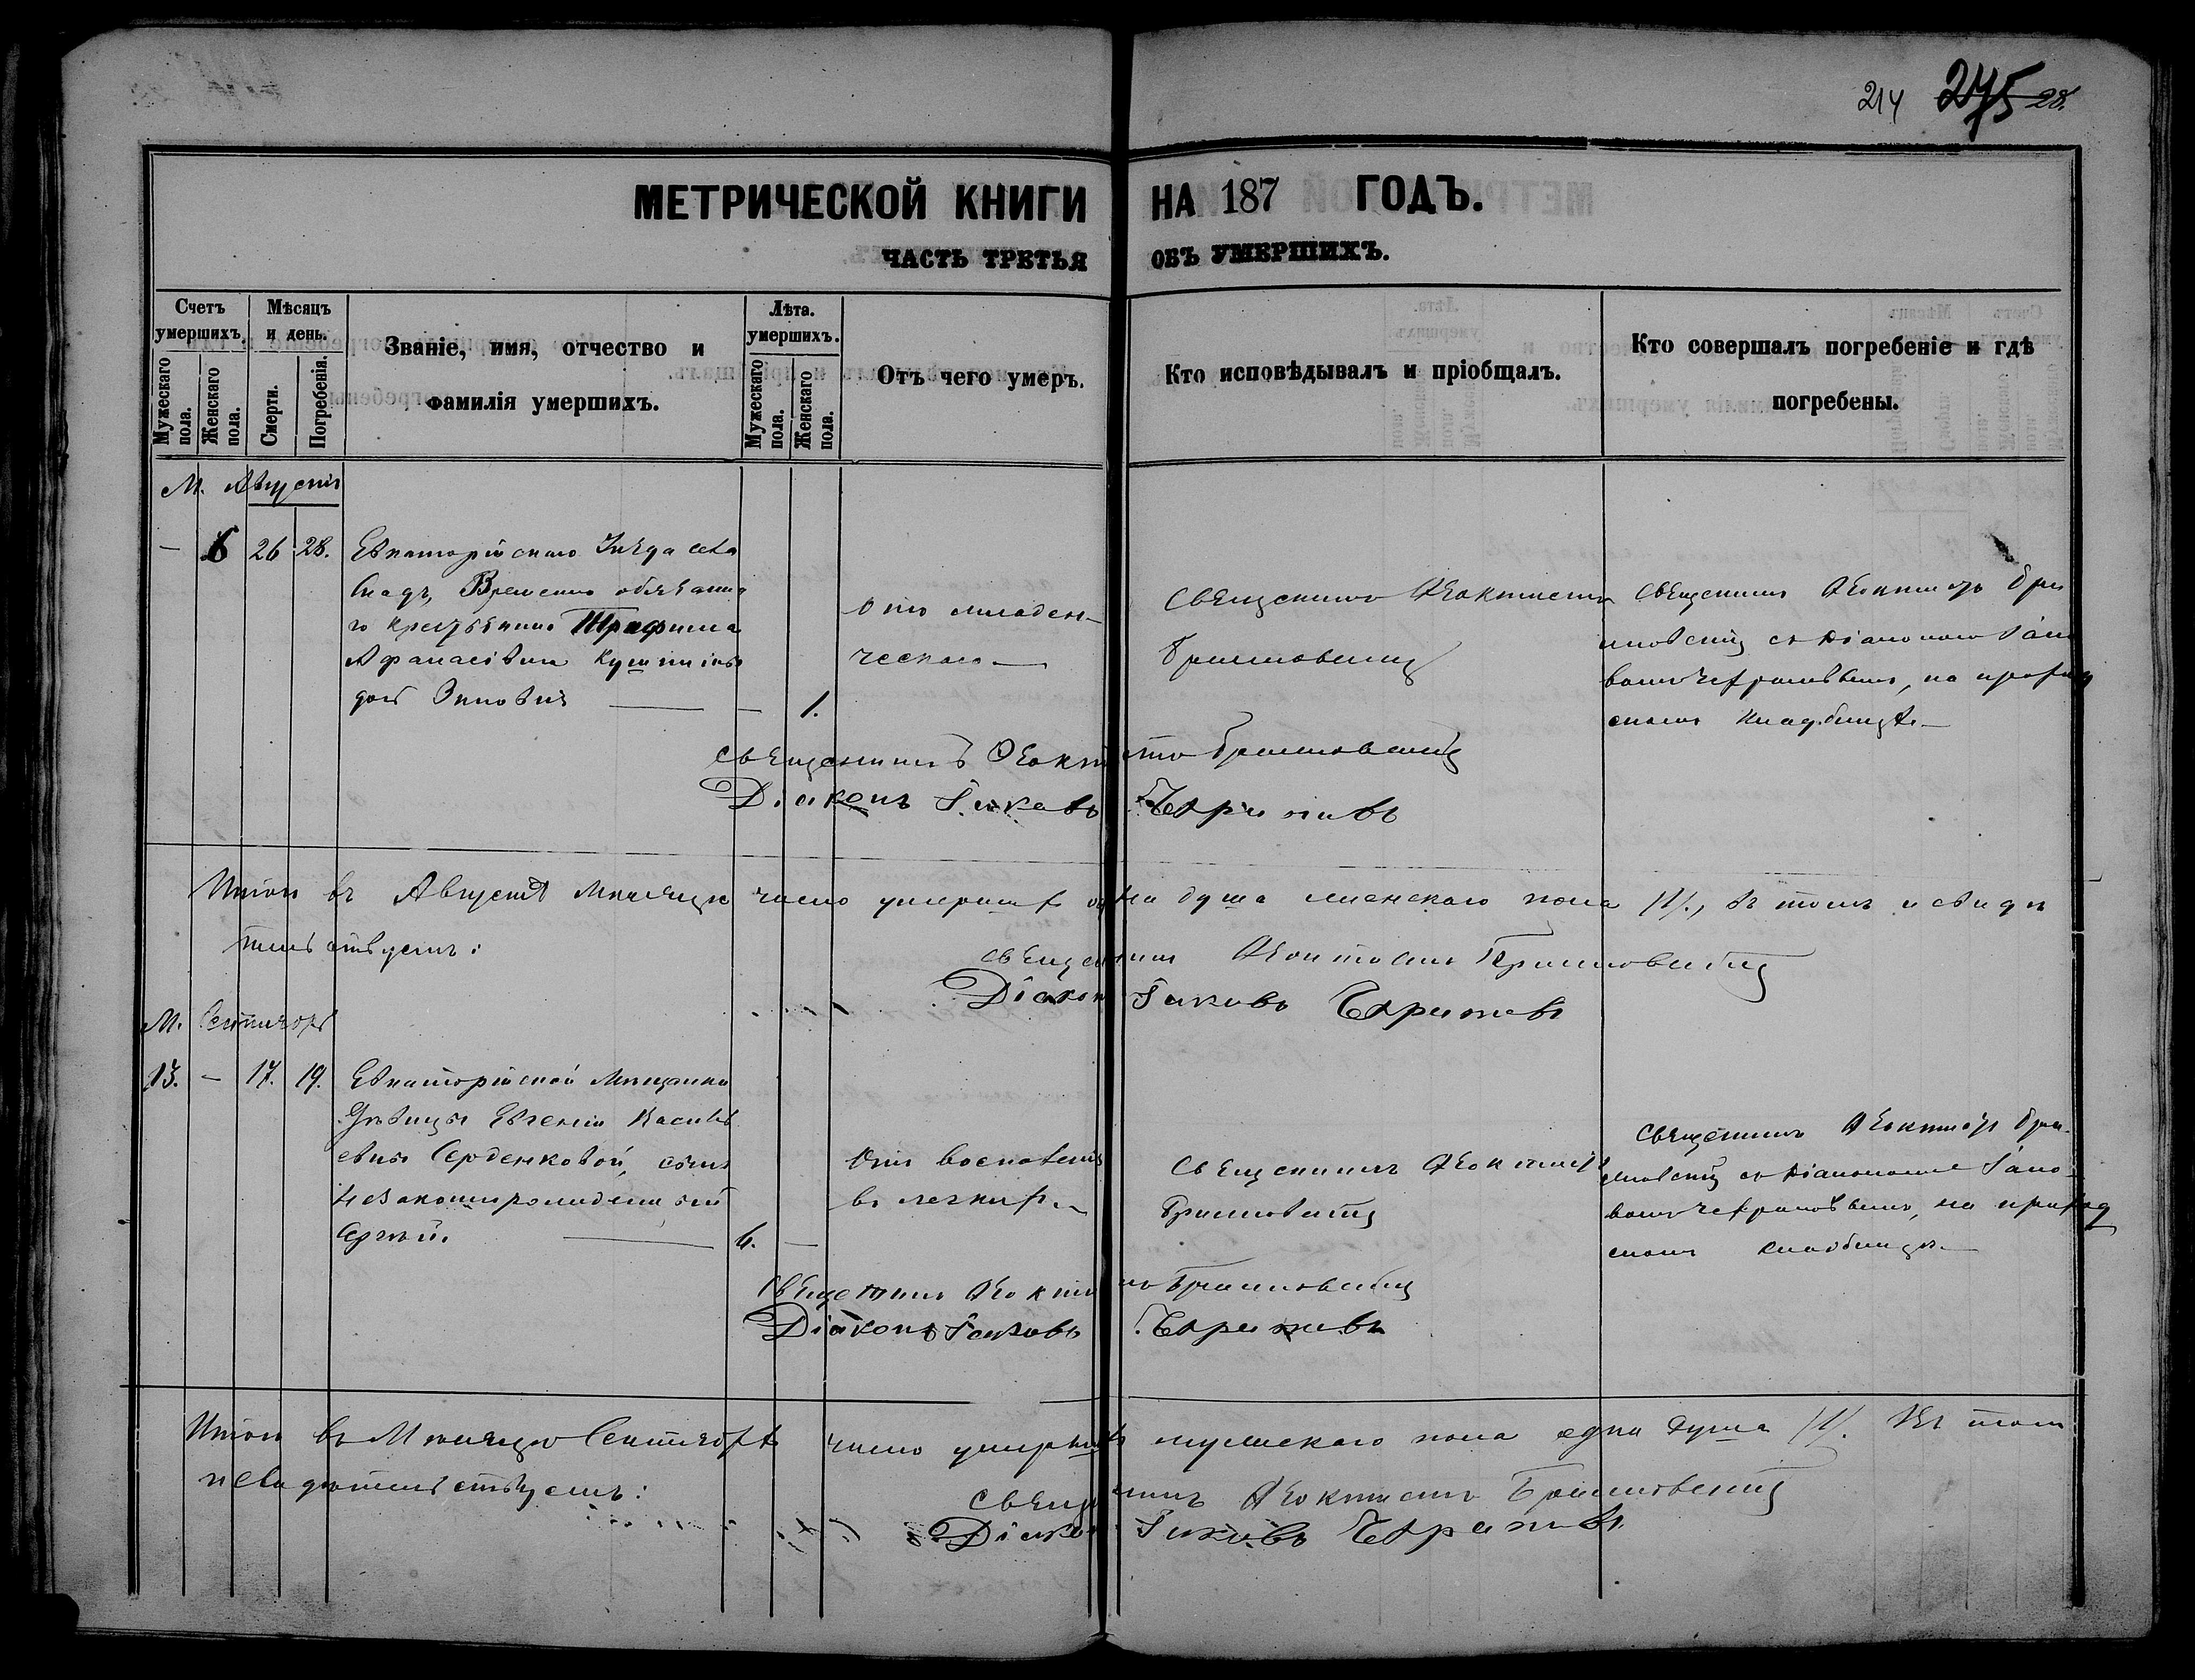 214 275 28.
МЕТРИЧЕСКОЙ КНИГИ НА 187 ГОДЪ.
ЧАСТЬ ТРЕТЬЯ ОБЪ УМЕРШИХЪ.
Счетъ умершихъ.
Мужескаго пола.
Женскаго пола.
Мѣсяцъ и день.
Смерти.
Погребенія.
Званіе, имя, отчество и
фамилія умершихъ.
Лѣта. умершихъ.
Мужескаго пола.
Женскаго пола.
Отъ чего умеръ.
Кто исповѣдывалъ и пріобщалъ.
Кто совершалъ погребеніе и гдѣ
погребены.
М. Августъ
— 6 26 28. Евпаторійскаго Уѣзда села
Временно обязанна
го крестьянина Трофима
Афанасіева
— 1.
Отъ младен-
ческаго —
Священникъ Ѳеоктистъ
Священникъ Ѳеоктистъ
съ Діакономъ Іако
вомъ, на приход
скомъ кладбищѣ. —
Священникъ Ѳеоктистъ
Діаконъ Іаковъ
Итого въ Августѣ Мѣсяцѣ число умершихъ одна душа женскаго пола /1/., въ томъ и свидѣ
тельствуемъ:
Священникъ Ѳеоктистъ
Діаконъ Іаковъ
М. Сентябрь
13. — 17. 19. Евпаторійской Мѣщанки
Дѣвицы Евгеніи Василь
евны Серденковой, сынъ
Незаконнорожденный
Сергѣй. — 6. —
Отъ воспаленія
въ легкихъ. —
Священникъ Ѳеоктистъ
Священникъ Ѳеоктистъ
съ Діакономъ Іако
вомъ, на приход
скомъ кладбищѣ. —
Священникъ Ѳеоктистъ
Діаконъ Іаковъ
Итого въ Мѣсяцѣ Сентябрѣ число умершихъ мужескаго пола одна душа /1/. Въ томъ
и свидѣтельствуемъ:
Священникъ Ѳеоктистъ
Діаконъ Іаковъ